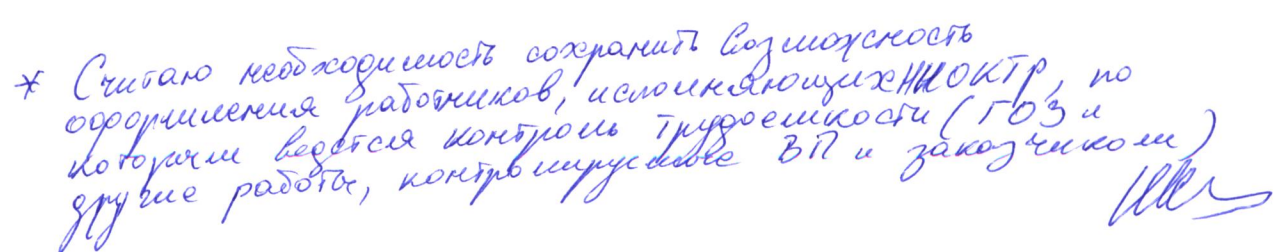 * Считаю необходимость сохранить возможность
оформления работников, исполняющих НИОКТР, по
которым ведётся контроль трудоемкости (ГОЗ и
другие работы, контролируемые ВП и заказчиком)